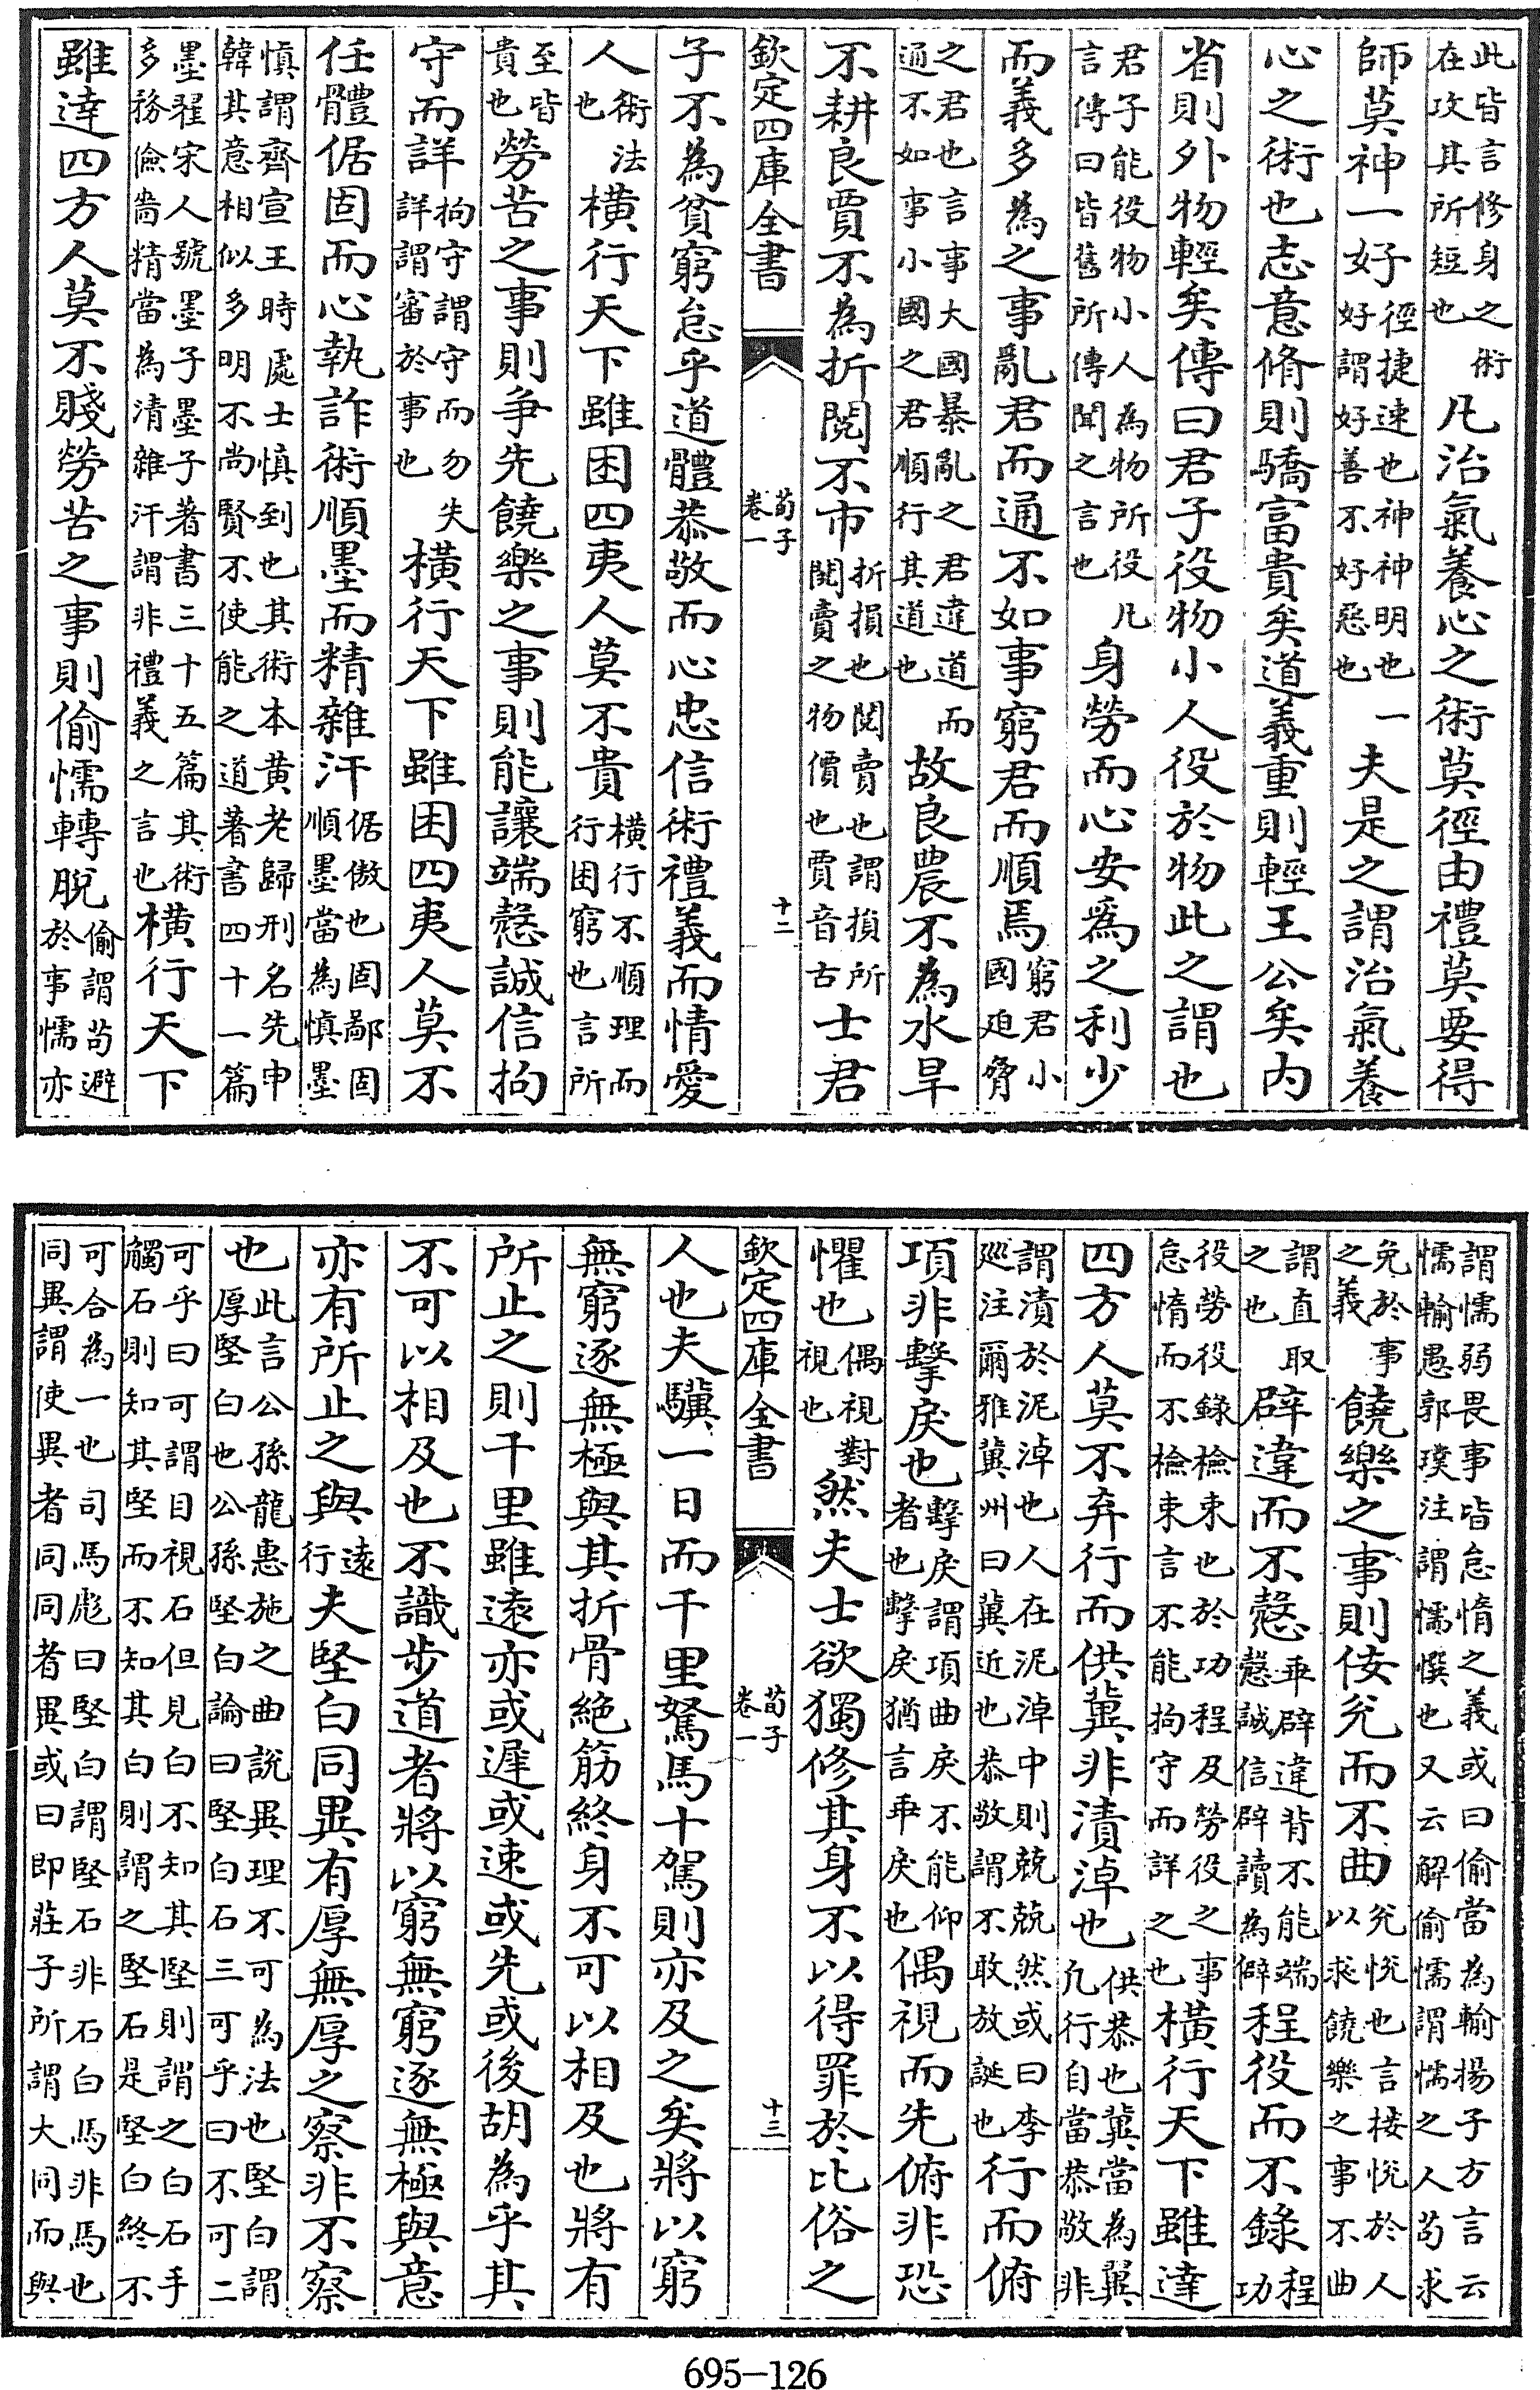 此皆言修身之術在攻其所短也凡治氣養心之術莫徑由禮莫要得
師莫神一好徑捷速也神神明也一好謂好善不好惡也夫是之謂治氣養
心之術也志意脩則驕富貴矣道義重則輕王公矣内
省則外物輕矣傳曰君子役物小人役於物此之謂也
君子能役物小人為物所役凡言傳曰皆舊所傳聞之言也身勞而心安爲之利少
而義多為之事亂君而通不如事窮君而順焉窮君小國迫脅
之君也言事大國暴亂之君違道而通不如事小國之君順行其道也故良農不為水旱
不耕良賈不為折閱不市折損也閱賣也謂損所閱賣之物價也賈音古士君
欽定四庫全書
荀子卷一
十二
子不為貧窮怠乎道體恭敬而心忠信術禮義而情愛
人術法也橫行天下雖困四夷人莫不貴橫行不順理而行困窮也言所
至皆貴也勞苦之事則争先饒樂之事則能讓端慤誠信拘
守而詳拘守謂守而勿失詳謂審於事也橫行天下雖困四夷人莫不
任體倨固而心執詐術順墨而精雜汗倨傲也固鄙固順墨當為慎墨
慎謂齊宣王時處士慎到也其術本黄老歸刑名先申韓其意相似多明不尚賢不使能之道著書四十一篇
墨翟宋人號墨子墨子著書三十五篇其術多務儉嗇精當為清雜汗謂非禮義之言也橫行天下
雖達四方人莫不賤勞苦之事則偷懦轉脫偷謂苟避於事懦亦
謂懦弱畏事皆怠惰之義或曰偷當為輸揚子方言云懦輸愚郭璞注謂懦愞也又云解偷懦謂懦之人苟求
免於事之義饒樂之事則佞兊而不曲兊悅也言佞悅於人以求饒樂之事不曲
謂直取之也辟違而不慤乖辟違背不能端慤誠信辟讀為僻程役而不錄程功
役勞役錄檢束也於功程及勞役之事怠惰而不檢束言不能拘守而詳之也橫行天下雖達
四方人莫不弃行而供冀非漬淖也供恭也冀當為翼凡行自當恭敬非
謂漬於泥淖也人在泥淖中則兢兢然或曰李巡注爾雅冀州曰冀近也恭敬謂不敢放誕也行而俯
項非擊戾也擊戾謂項曲戾不能仰者也擊戾猶言乖戾也偶視而先俯非恐
懼也偶視對視也然夫士欲獨修其身不以得罪於比俗之
欽定四庫全書
荀子卷一
十三
人也夫驥一日而千里駑馬十駕則亦及之矣將以窮
無窮逐無極與其折骨絶筋終身不可以相及也將有
所止之則千里雖遠亦或遲或速或先或後胡為乎其
不可以相及也不識步道者將以窮無窮逐無極與意
亦有所止之與遠行夫堅白同異有厚無厚之察非不察
也此言公孫龍惠施之曲説異理不可為法也堅白謂厚堅白也公孫堅白論曰堅白石三可乎曰不可二
可乎曰可謂目視石但見白不知其堅則謂之白石手觸石則知其堅而不知其白則謂之堅石是堅白終不
可合為一也司馬彪曰堅白謂堅石非石白馬非馬也同異謂使異者同同者異或曰即莊子所謂大同而與
695-126